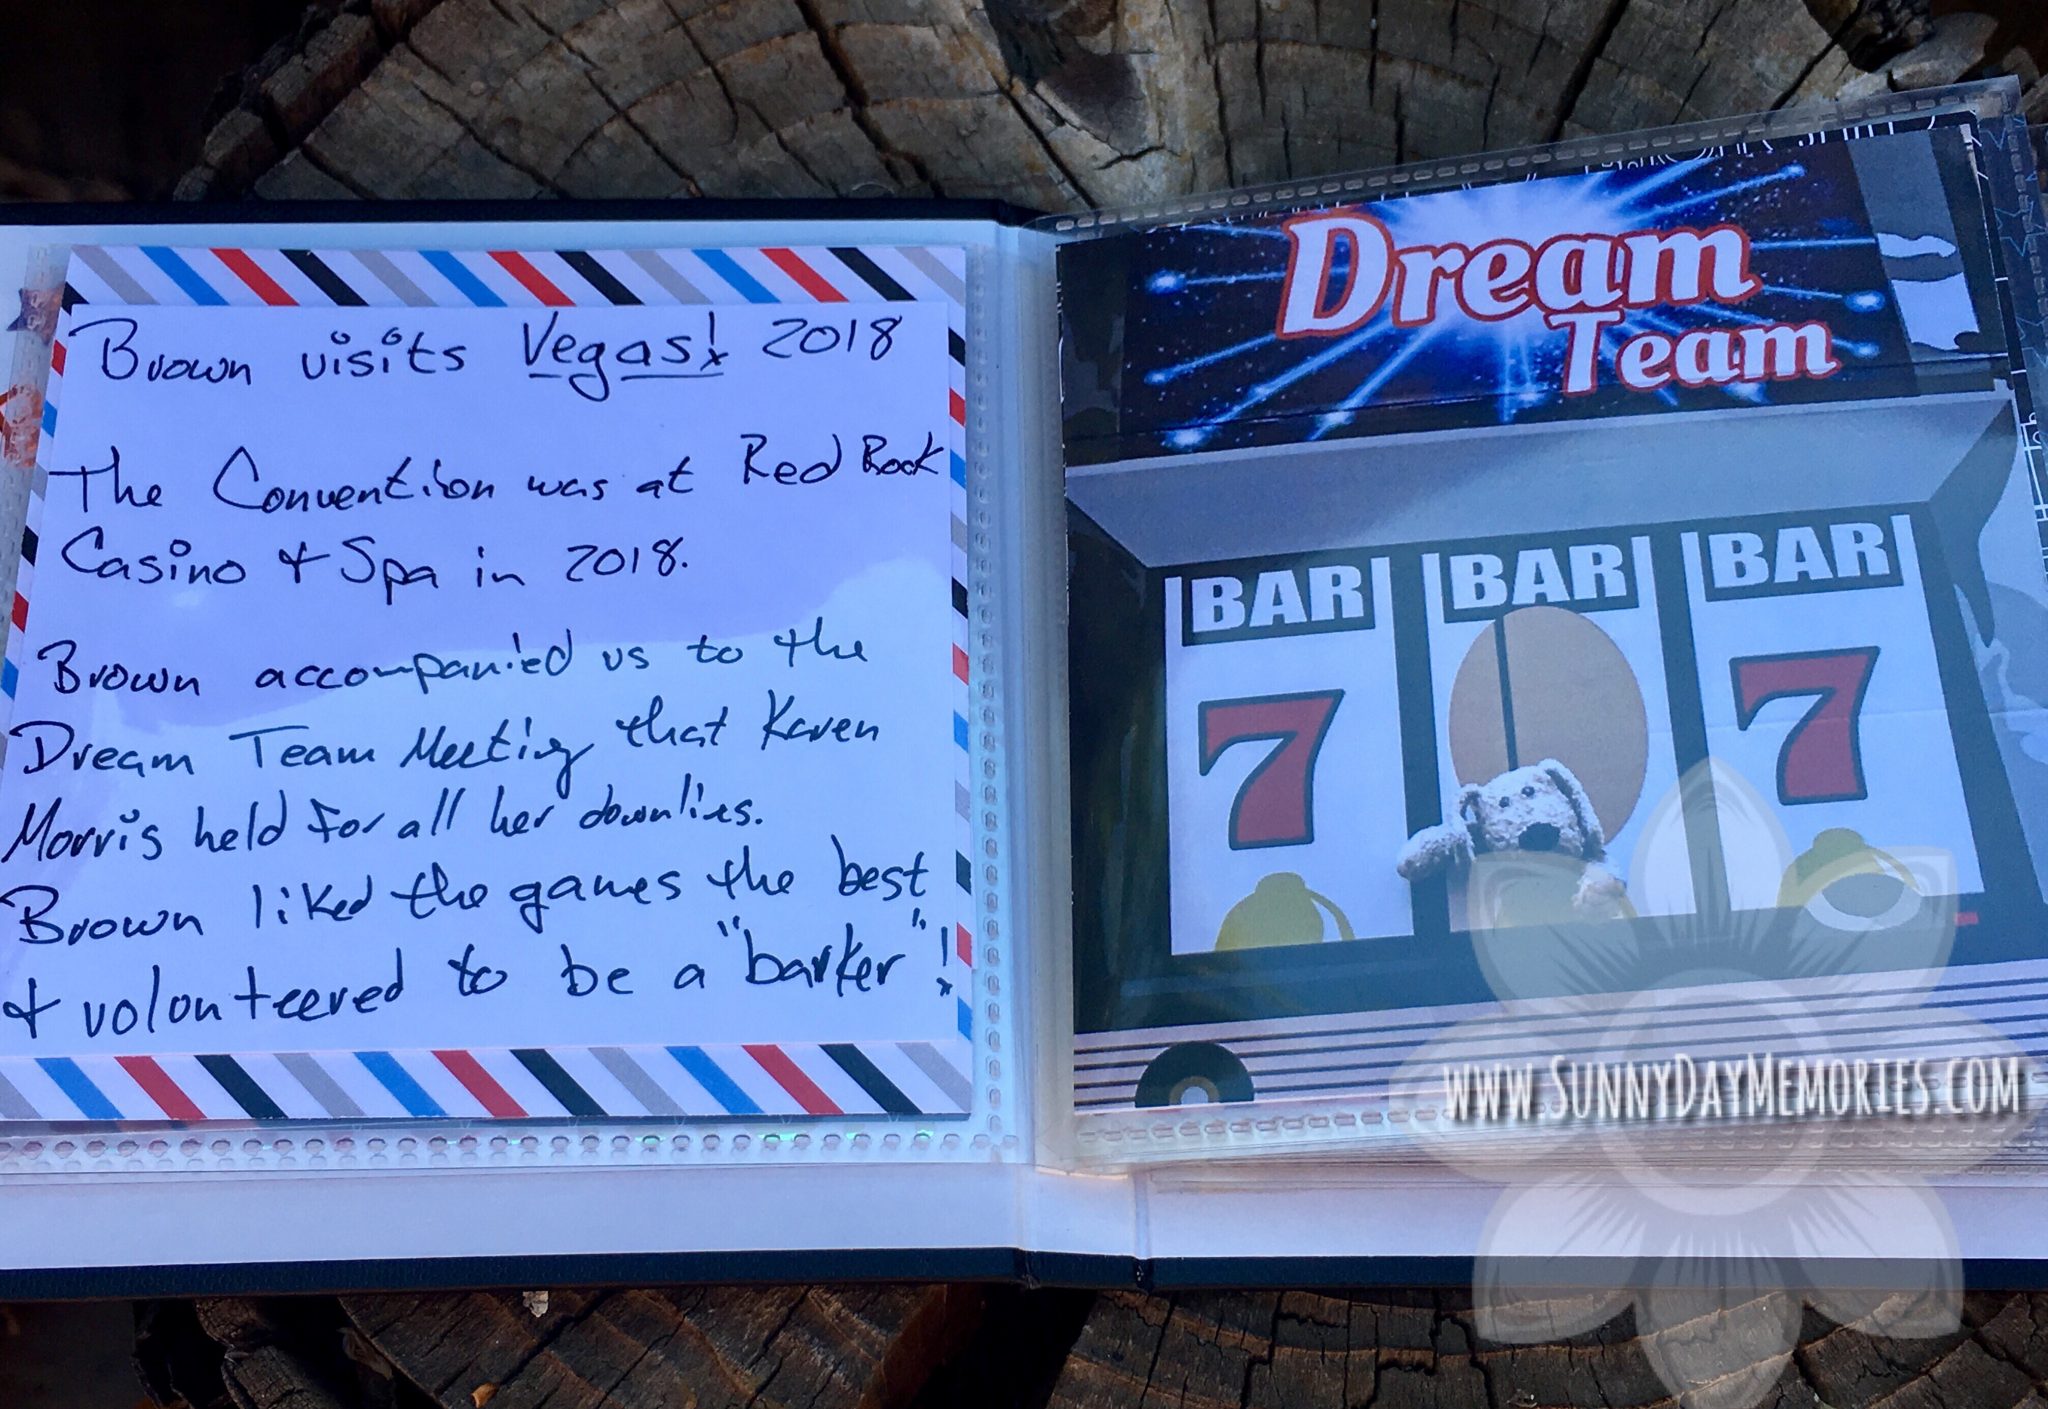 Brown visits Vegas! 2018
The Convention was at Red Rock
Casino & Spa in 2018.
Brown accompanied us to the
Dream Team Meeting that Karen
Morris held for all her downlines.
Brown liked the games the best
& volunteered to be a "barker"!
Dream
Team
BAR BAR BAR
7 7
www.SunnyDayMemories.com